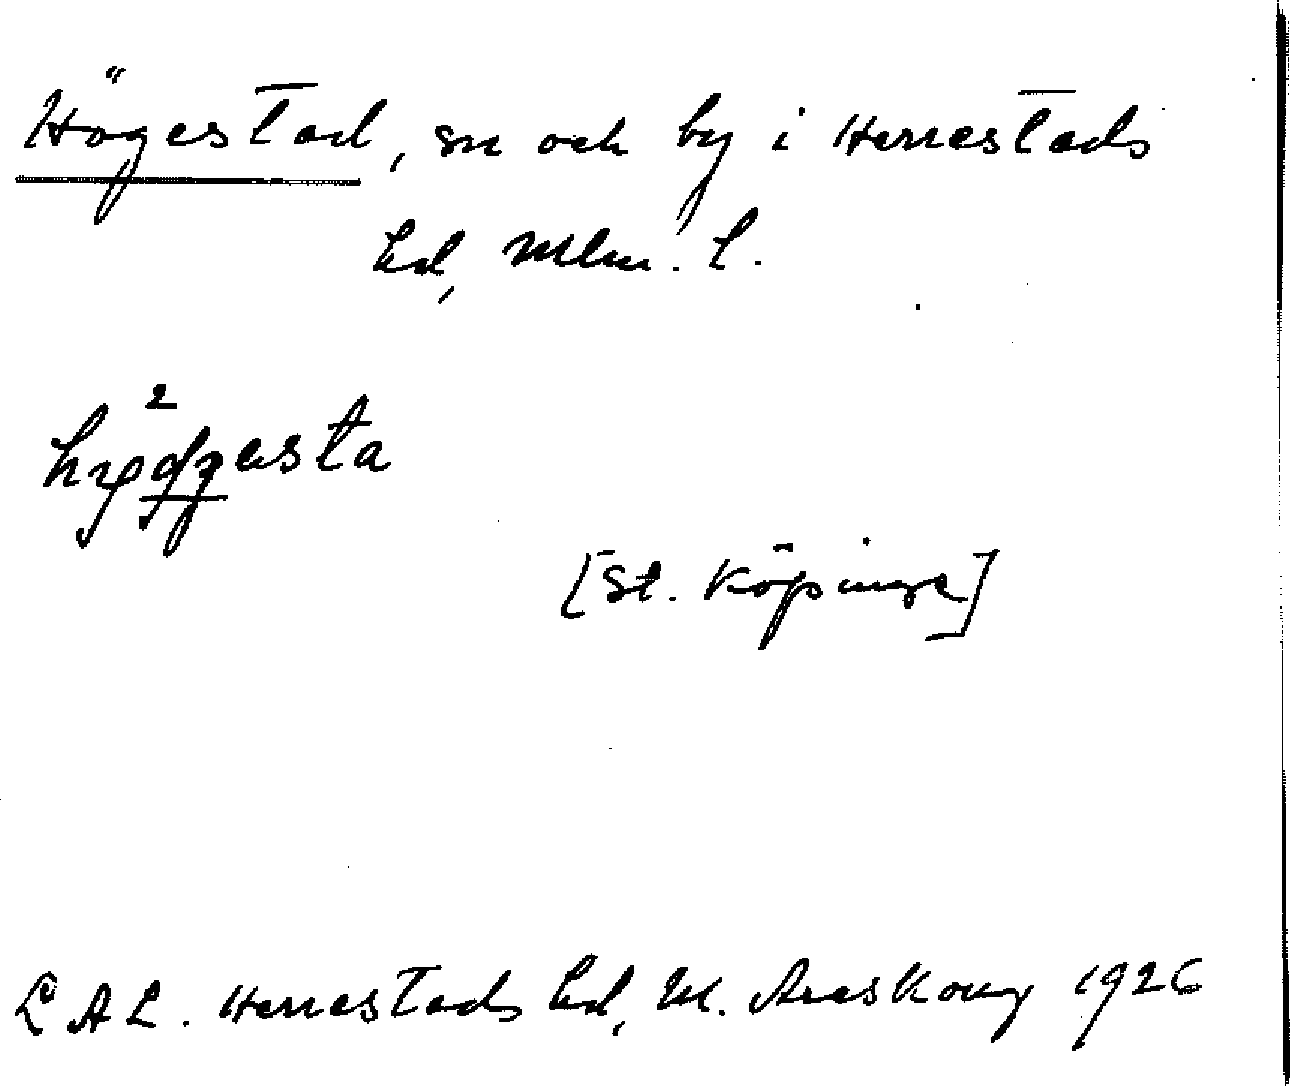 Högestad, sn och by i Herrestads
hd, Mlm. l.
[St. Köpinge]
LAL. Herrestads hd, M. Areskoug 1926